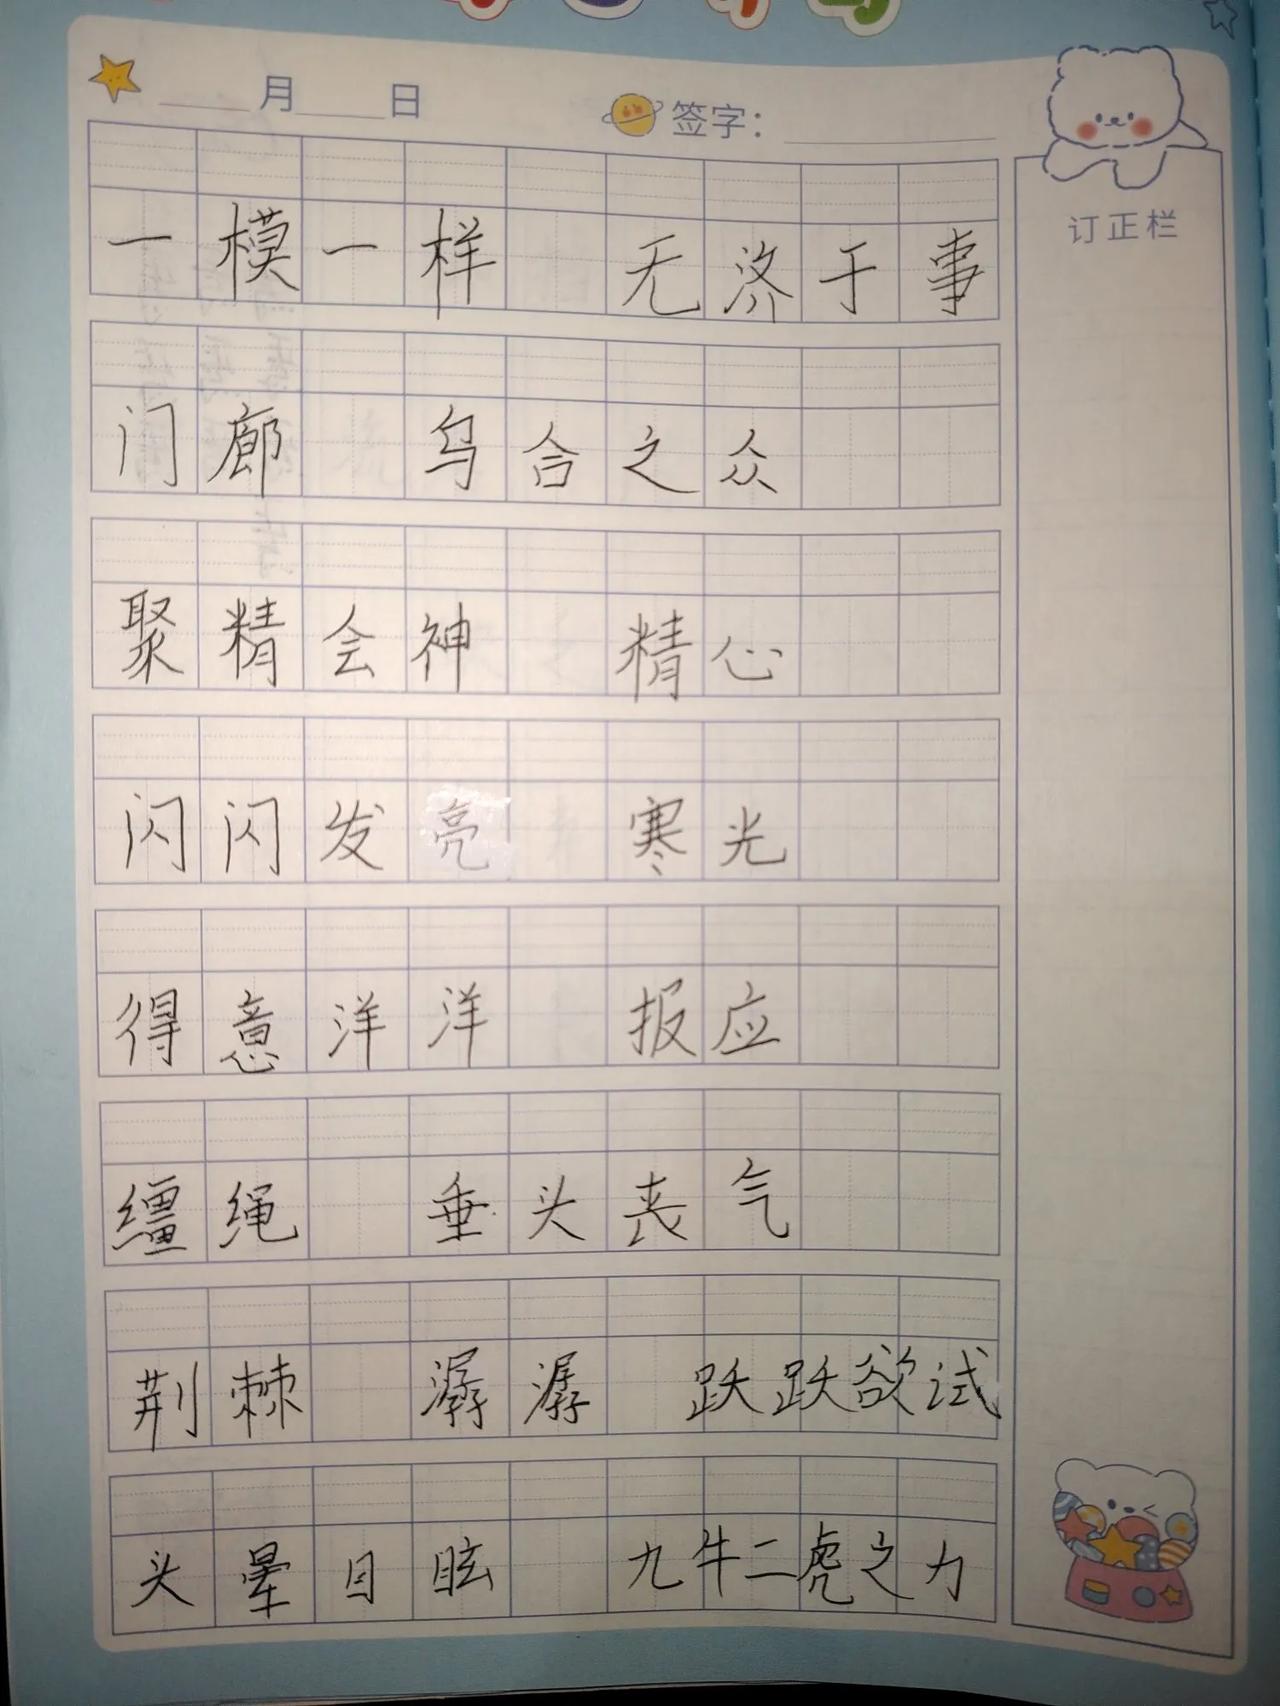 月 日 签字:
订正栏
一模一样 无济于事
门廊 乌合之众
聚精会神 精心
闪闪发亮 寒光
得意洋洋 报应
缰绳 垂头丧气
荆棘 潺潺 跃跃欲试
头晕目眩 九牛二虎之力